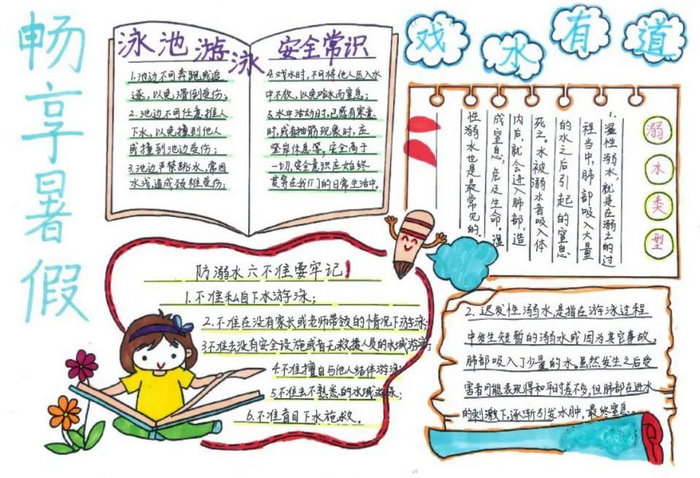 畅享暑假
泳池游泳 安全常识
1.池边不可奔跑或追
逐，以免滑倒受伤；
2.池边不可任意推人
下水，以免撞到他人
或撞到池边受伤；
3.池边严禁跳水，常因
水浅，造成颈椎受伤；
4.戏水时，不可将他人压入水
中不放，以免呛水而窒息；
5.水中活动时，已感有寒意
时，或有抽筋现象时，应
登岸休息等，安全高于
一切，安全意识应始终
贯穿在我们的日常生活中。
戏水有道
溺水类型
1.湿性溺水，就是在溺之的过
程当中，肺部吸入大量
的水之后引起的窒息
死之。水被溺水者吸入体
内后，就会进入肺部，造
成窒息，危及生命，湿
性溺水也是最常见的。
防溺水六不准要牢记！
1.不准私自下水游泳；
2.不准在没有家长或老师带领的情况下游泳
3.不准去没有安全设施或者无救援人员的水域游泳；
4.不准擅自与他人结伴游泳；
5.不准去不熟悉的水域游泳；
6.不准盲目下水施救。
2、迟发性溺水是指在游泳过程
中发生短暂的溺水或因为其它事故，
肺部吸入了少量的水。虽然发生之后受
害者可能表现得和平时差不多，但肺部在进水
的刺激下，逐渐引发水肿，最终窒息。